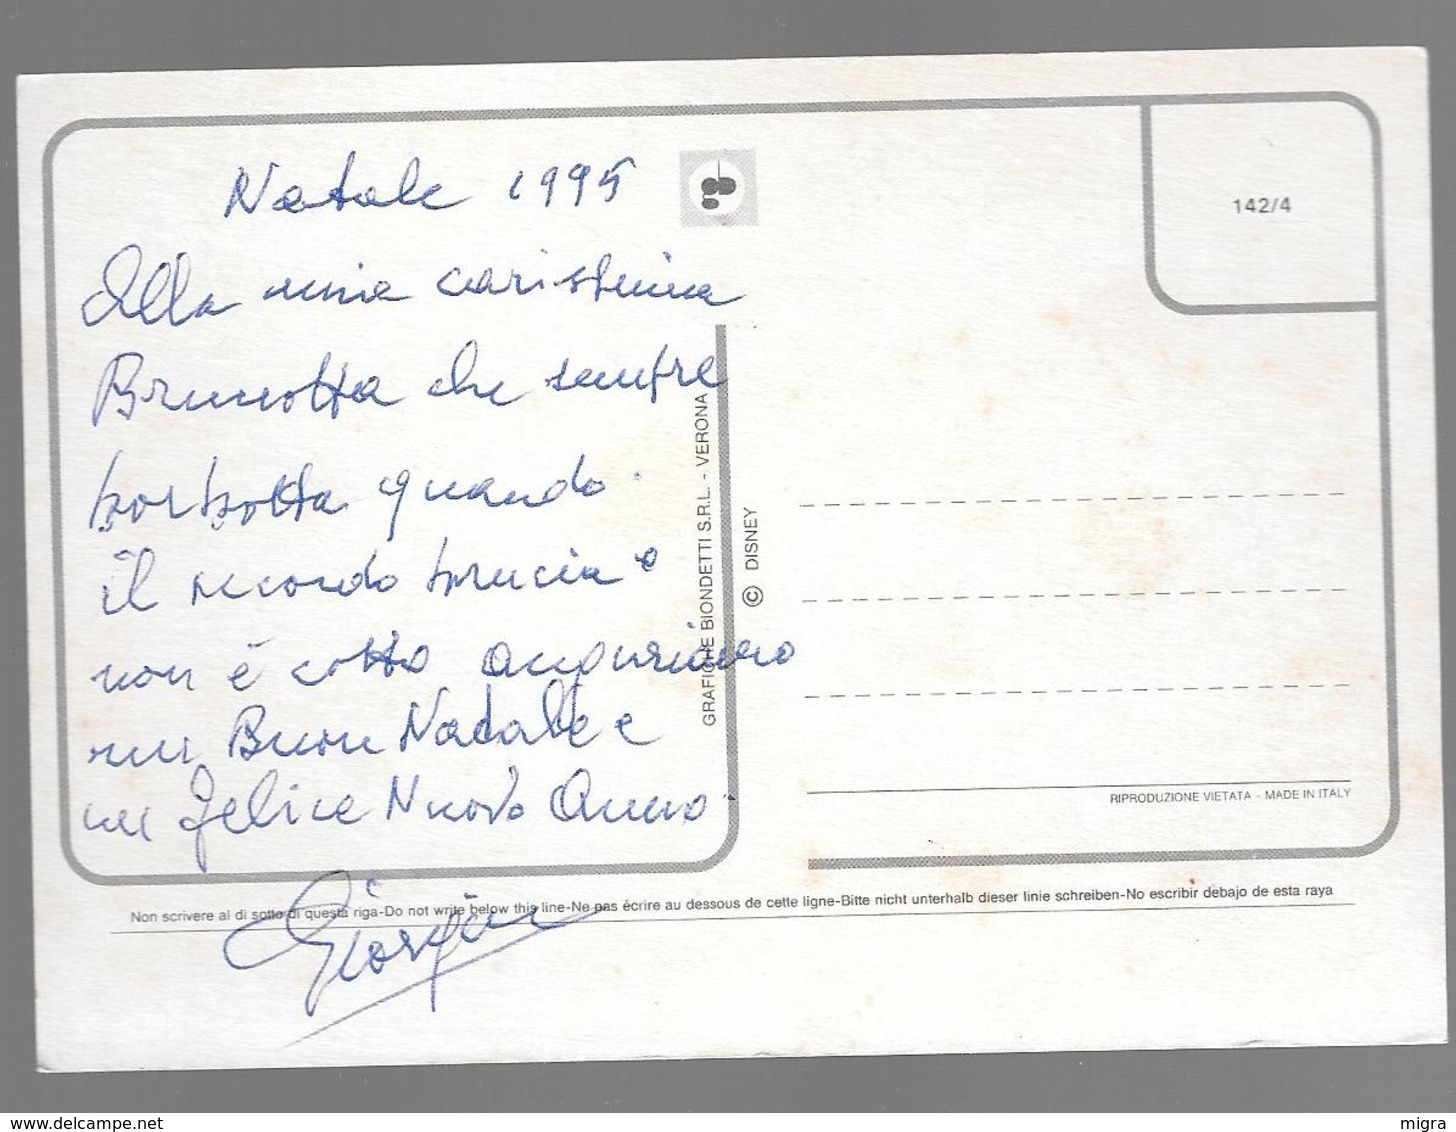 Natale 1995
Alla mia carissima
Brunotta che sempre
borbotta quando
il secondo brucia o
non è cotto auguriamo
un Buon Natale e
un felice Nuovo Anno.
142/4
GRAFICHE BIONDETTI S.R.L. - VERONA
© DISNEY
RIPRODUZIONE VIETATA - MADE IN ITALY
Non scrivere al di sotto di questa riga-Do not write below this line-Ne pas écrire au dessous de cette ligne-Bitte nicht unterhalb dieser linie schreiben-No escribir debajo de esta raya
delcampe.net
migra